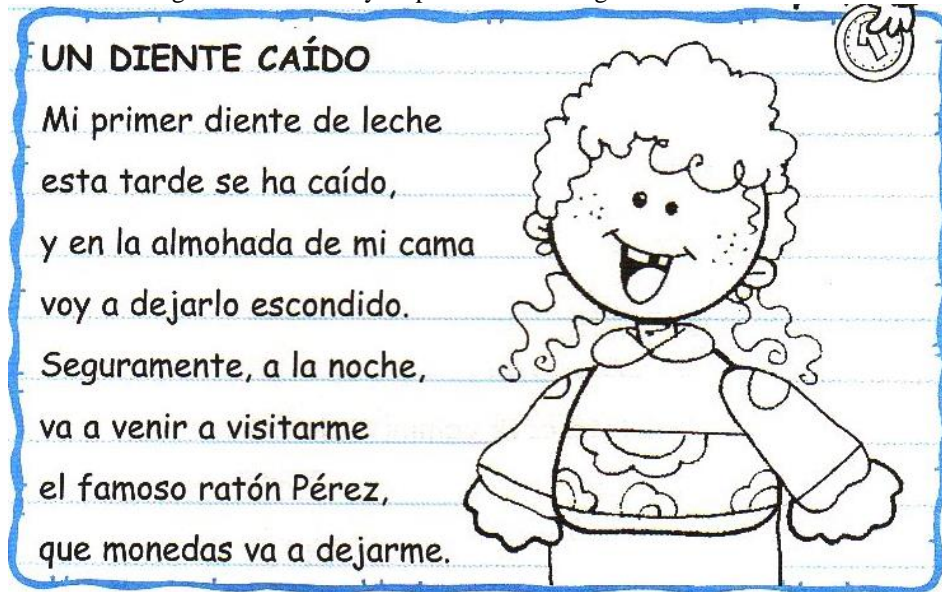 UN DIENTE CAÍDO
Mi primer diente de leche
esta tarde se ha caído,
y en la almohada de mi cama
voy a dejarlo escondido.
Seguramente, a la noche,
va a venir a visitarme
el famoso ratón Pérez,
que monedas va a dejarme.